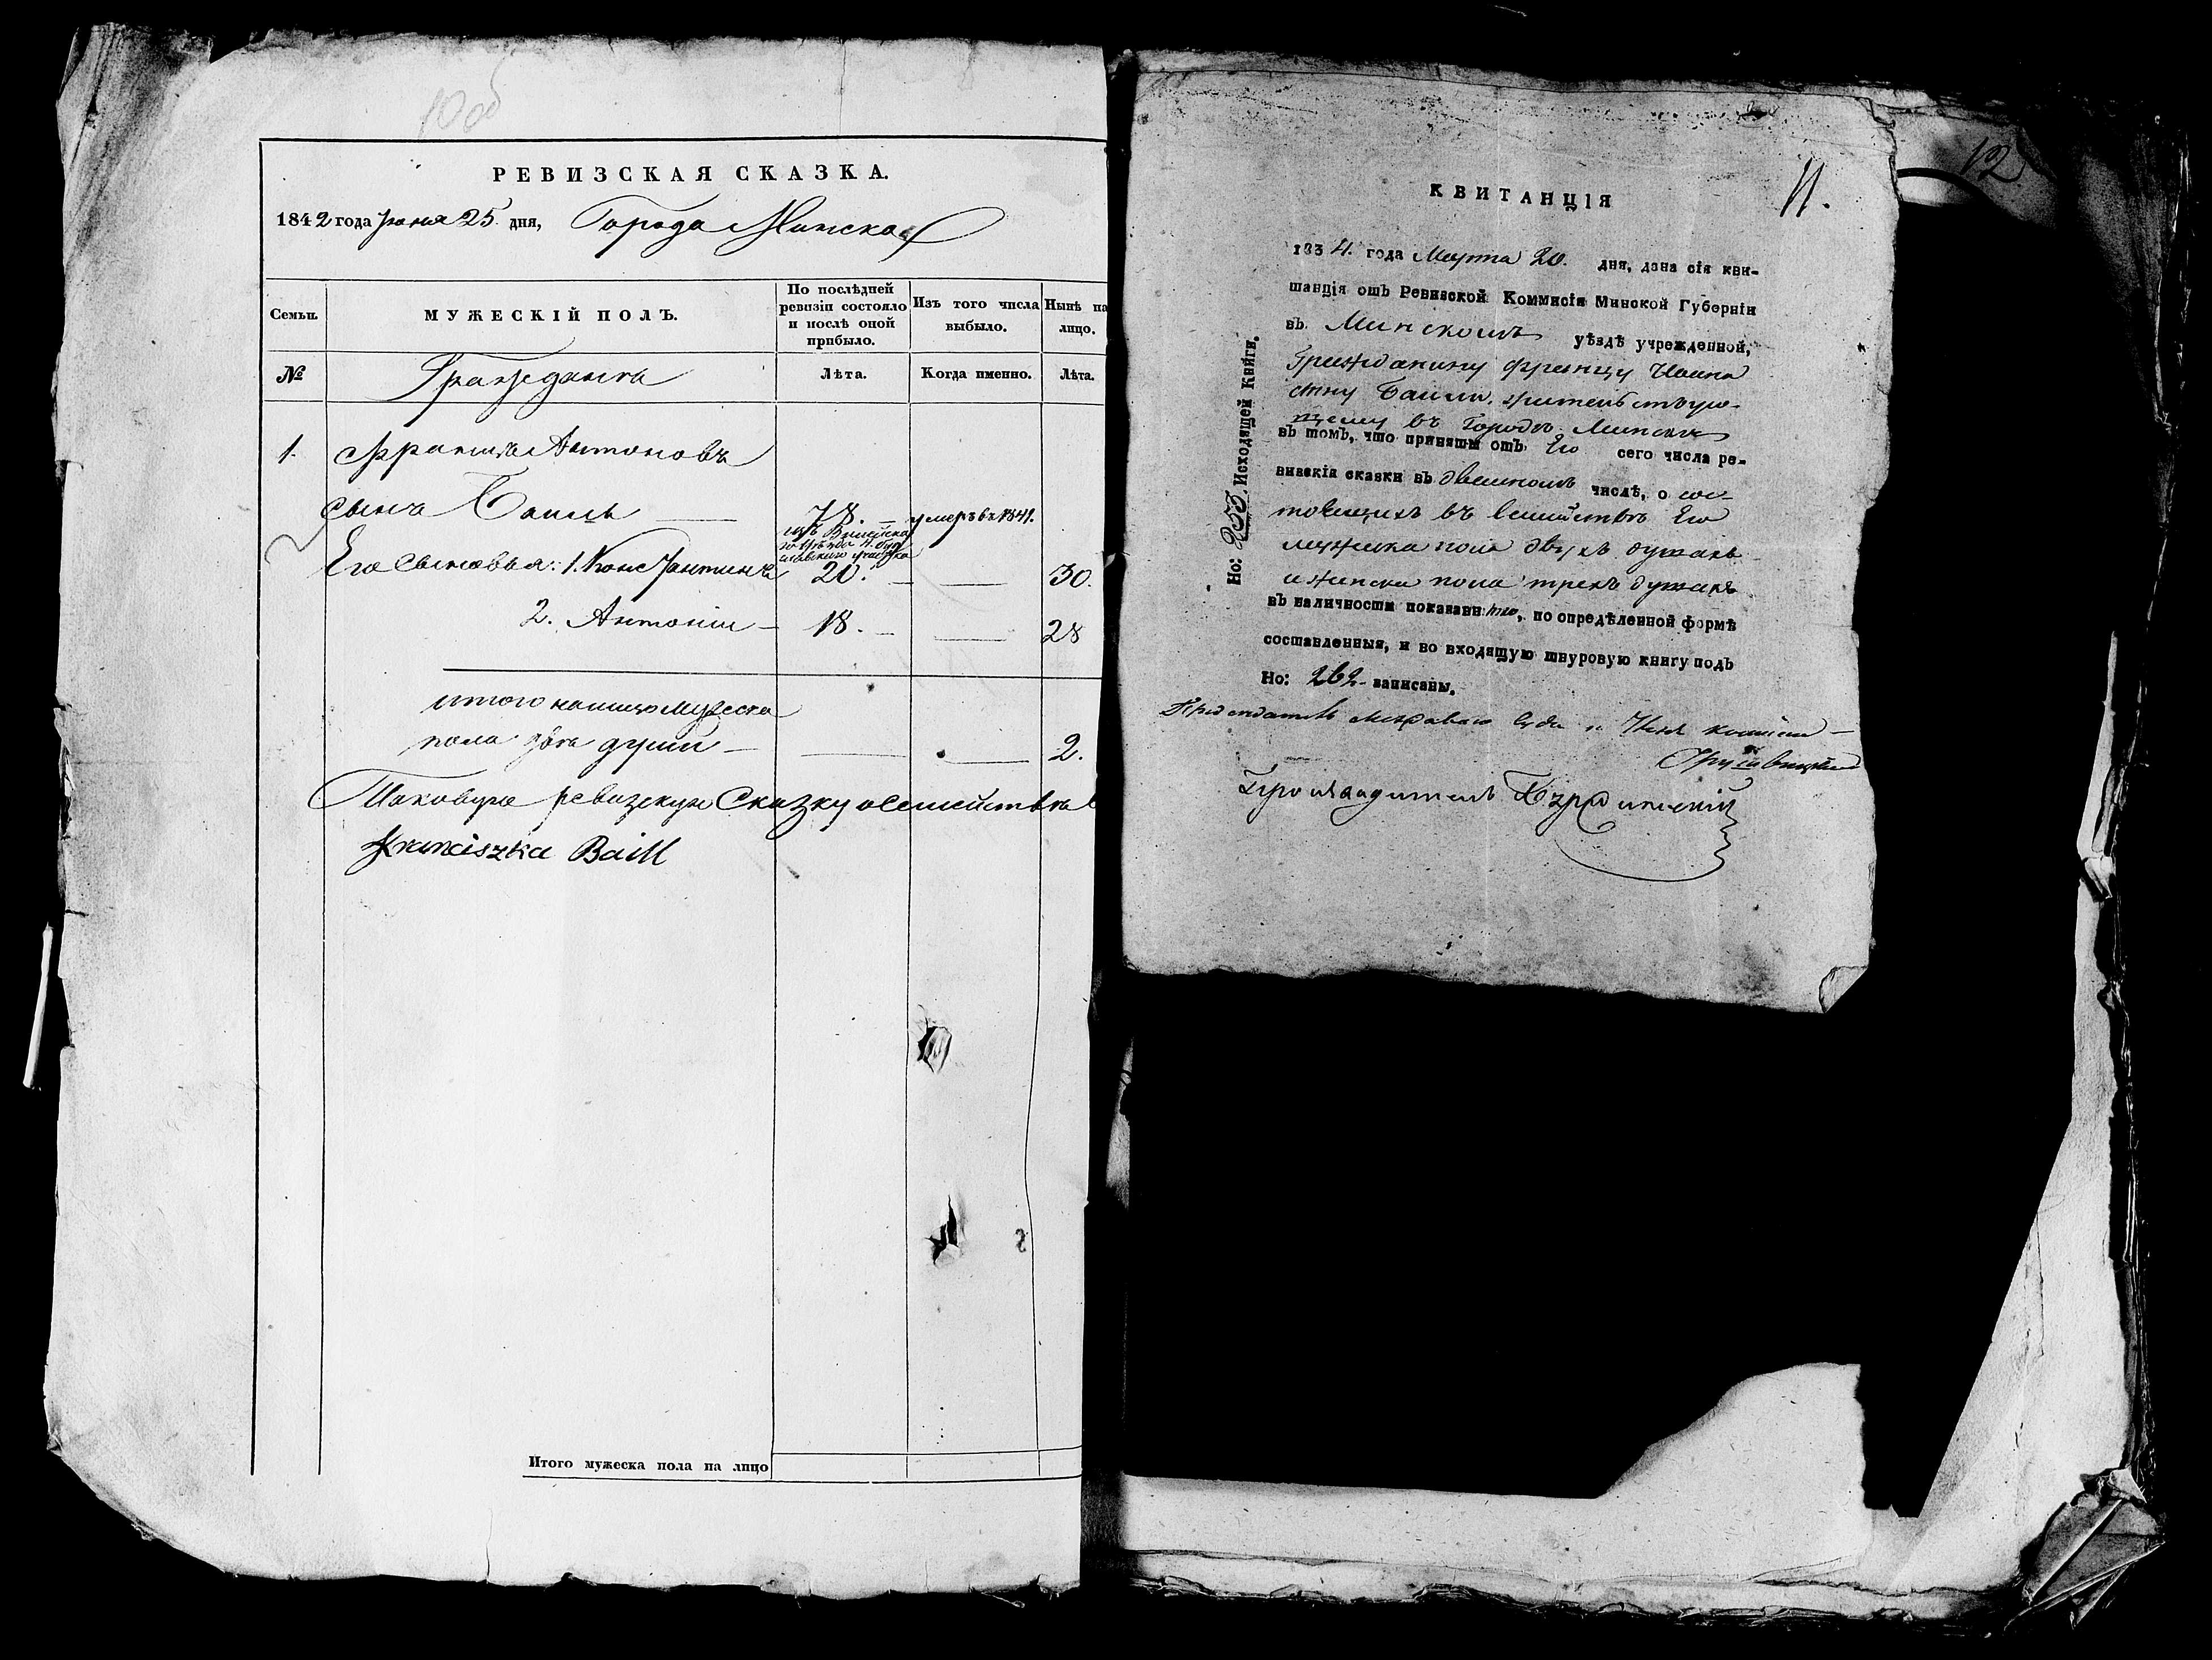 10об
РЕВИЗСКАЯ СКАЗКА.
1842 года Іюня 25 дня, Города Минска
Семьи.
МУЖЕСКІЙ ПОЛЪ.
По послѣдней ревизіи состояло и послѣ оной прибыло.
Изъ того числа выбыло.
Нынѣ на лицо.
№
Гражданъ
Лѣта.
Когда именно.
Лѣта.
1. Францъ Антоновъ
сынъ Баиль 78. умеръ въ 1841.
изъ Вилейска
участка
Его Сыновья: 1. Константинъ 20. 30.
2. Антоній 18. 28
Итого налицо мужеска
пола двѣ души 2.
Таковую ревизскую Сказку о семействѣ
Franciszka Baill
Итого мужеска пола на лицо
12
11.
КВИТАНЦІЯ
1834. года Марта 20. дня, дана сія кви-
танція отъ Ревизской Коммисіи Минской Губерніи
въ Минскомъ уѣздѣ учрежденной,
Гражданину Францу
сыну Баилю, жительствую-
щему въ Городѣ Минскѣ
въ томъ, что приняты отъ Его сего числа ре-
визскія сказки въ двойномъ числѣ, о сос-
тоящихъ въ Семействѣ Его
мужеска пола двухъ душахъ
и женска пола трехъ душахъ
въ наличности показанныхъ, по опредѣленной формѣ
составленныя, и во входящую шнуровую книгу подъ
Но: 262 записаны.
Но: 253 Исходящей Книги.
Предсѣдатель Суда и Членъ
Производитель